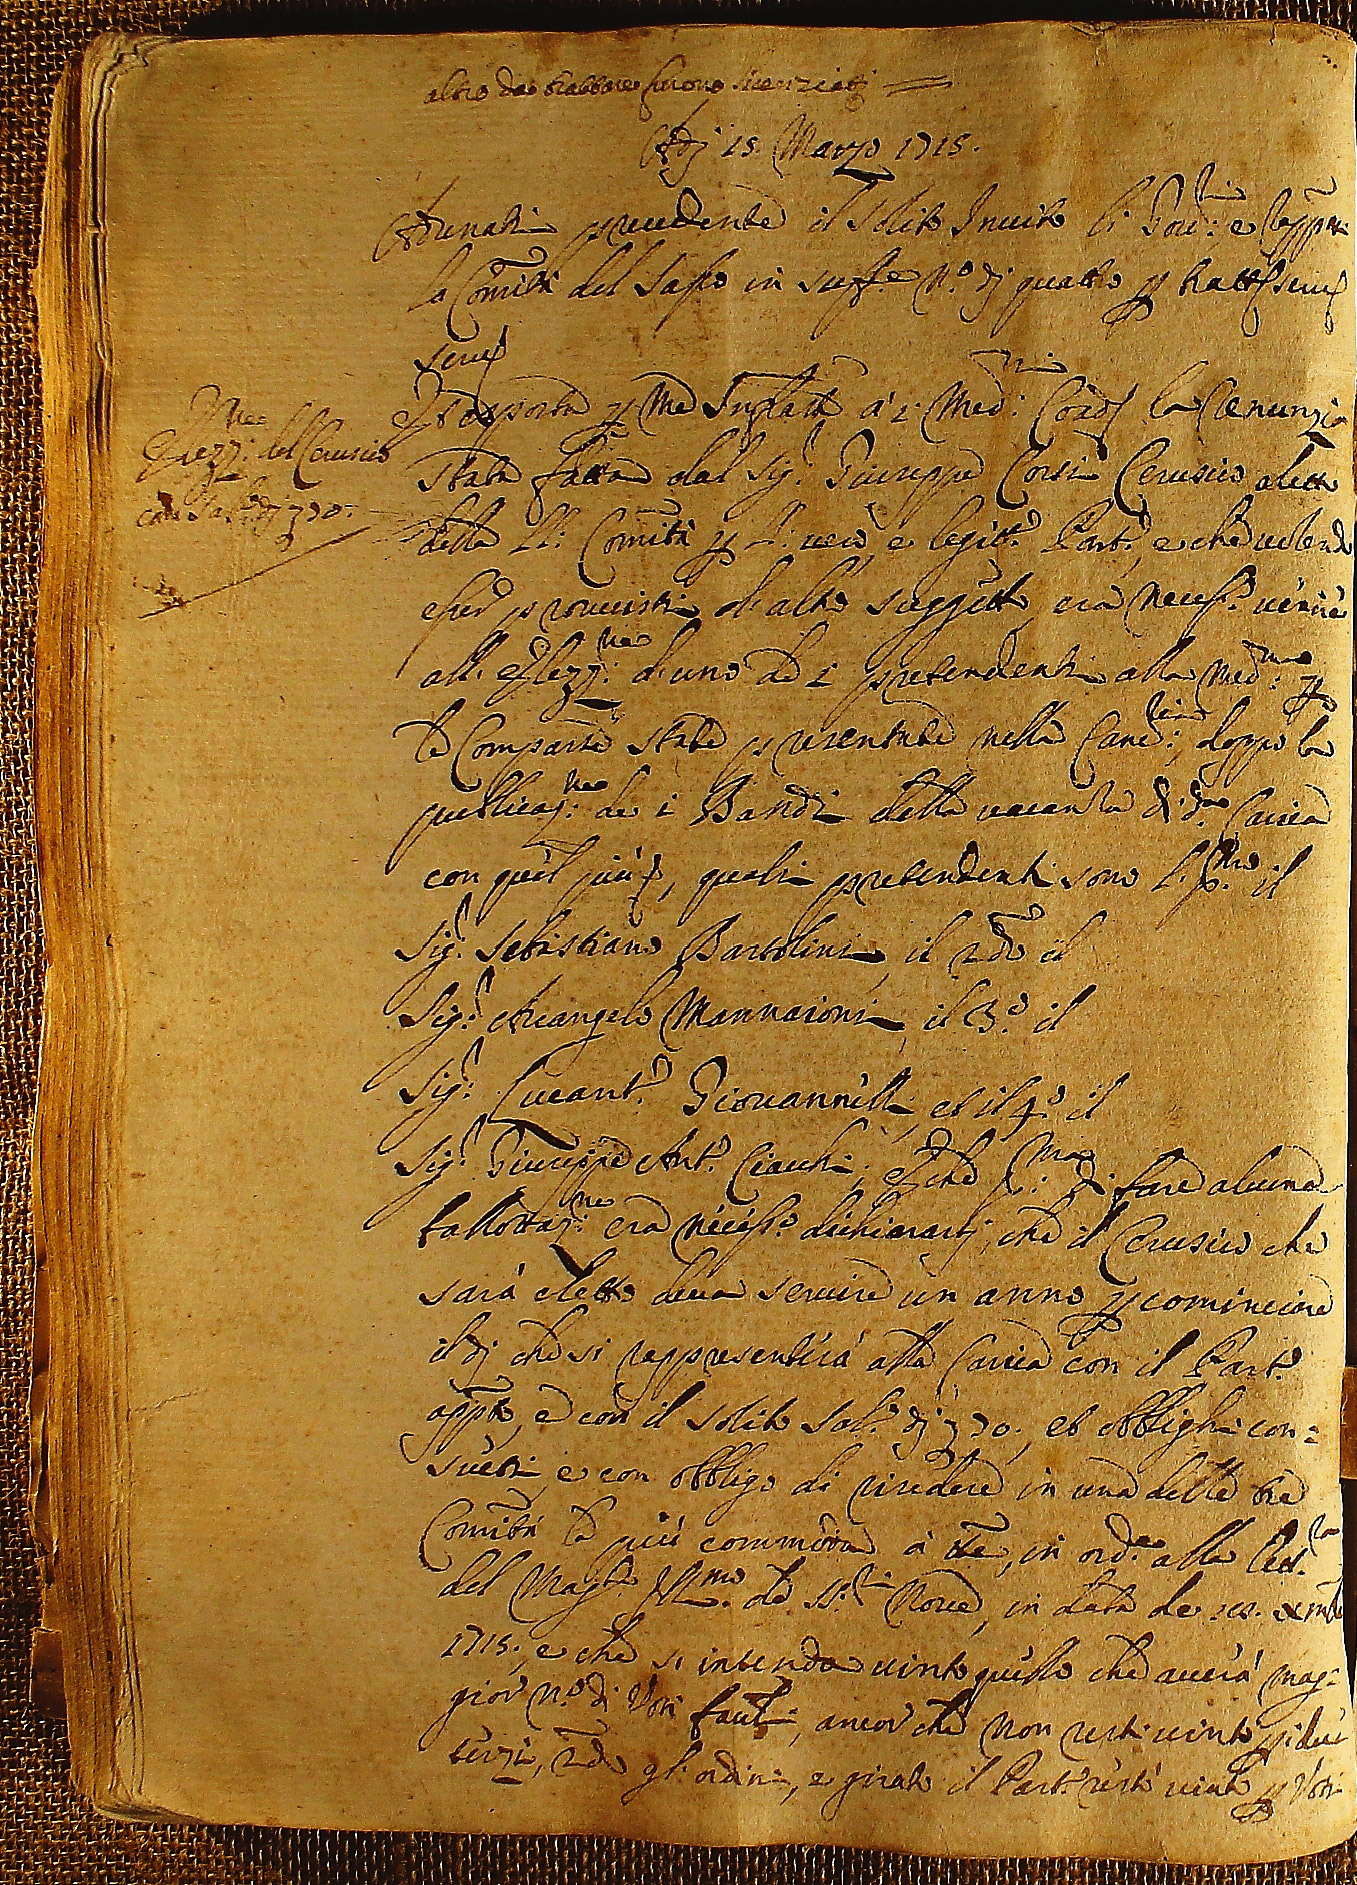 altro da trattare furono licenziati =
Adj 15. Marzo 1715.
Adunati precedente il solito Invito li Sodi: e Rapp:ti
la Comità del Sasso in suff.e N.o dj quattro p trattf
Elezz:ne del Cerusico
con Sal.o dj 70.
Esposta p Me Infratto à i Med:mi la Renunzia
stata fatta dal Sig:r Giuseppe Corsi Cerusico eletto
della Comità p e legitt.o Part.o, e che volendo
esser provvisti d'altro suggetto, era necess.o venire
all'Elezz:ne d'uno de i pretendenti alla Med:ma p
le Comparse state presentate nella Canc:ria, doppo la
publicaz:ne de i Bandi della vacanza di d.a Carica
con quel più f, quali pretendenti sono L. P:mo il
Sig:r Sebistiano Bartolini, il 2do il
Sig:r Arcangelo Mannaioni, il 3.o il
Sig:r Lucant.o Giovannelli, et il 4.o il
Sig:r Giuseppe Ant.o Ciacchi; E che P:ma di fare alcuna
ballottaz:ne era necess.o dichiararsj, che il Cerusico che
sarà eletto deva servire un anno p cominciare
il dj che si rappresenterà alla Carica con il Part.o
app.to, e con il solito Sal.o dj 70., et obblighi con=
sueti, e con obbligo di risedere in una delle tre
Comità le più commoda à in ord.e alla Lett.ra
del Mag.to Ill.mo de SS.ri Nove, in data de
1715., e che si intenda vinto quello che averà mag=
gior n.o di Voti favli, ancor che non resti vinto p i due
terzi, 2do gl'ordini, e girato il Part.o resti vinto p Voti